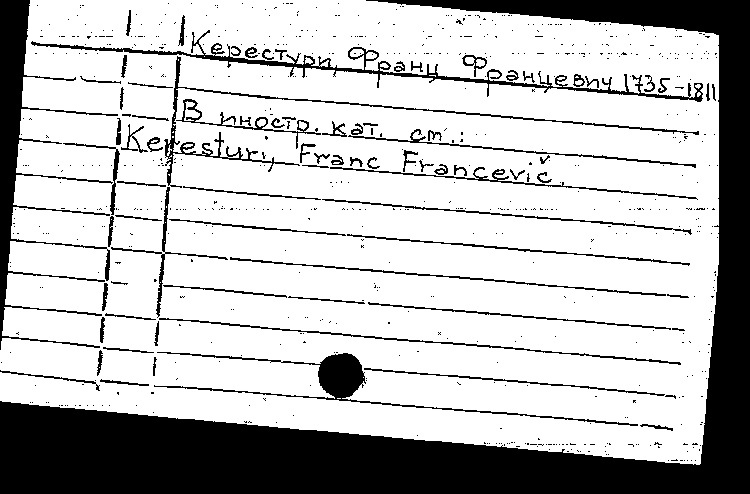 Керестури, Франц Францевич 1735-1811
В иностр. кат. см.:
Keresturi, Franc Francevič.